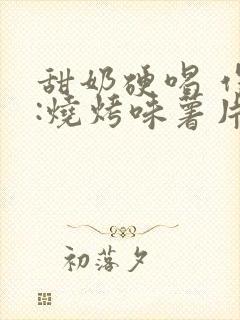 甜奶硬唱
:燒烤味薯片
初落夕